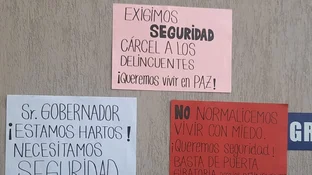 EXIGIMOS
SEGURIDAD
CÁRCEL A LOS
DELINCUENTES
¡Queremos vivir en PAZ!
Sr. GOBERNADOR
¡ESTAMOS HARTOS!
NECESITAMOS
SEGURIDAD
NO NORMALICEMOS
VIVIR CON MIEDO.
¡Queremos seguridad!
BASTA DE PUERTA
GIRATORIA
GR